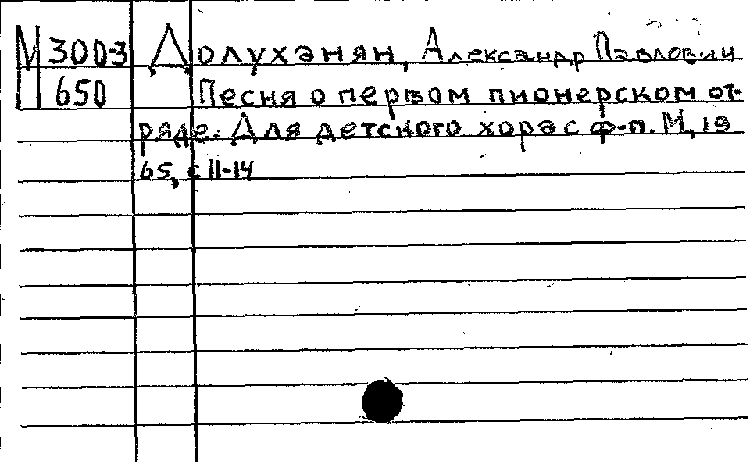 М 300-3 Долуханян, Александр Павлович
650 Песня о первом пионерском от-
ряде. Для детского хора с ф-п. М, 19
65, с 11-14